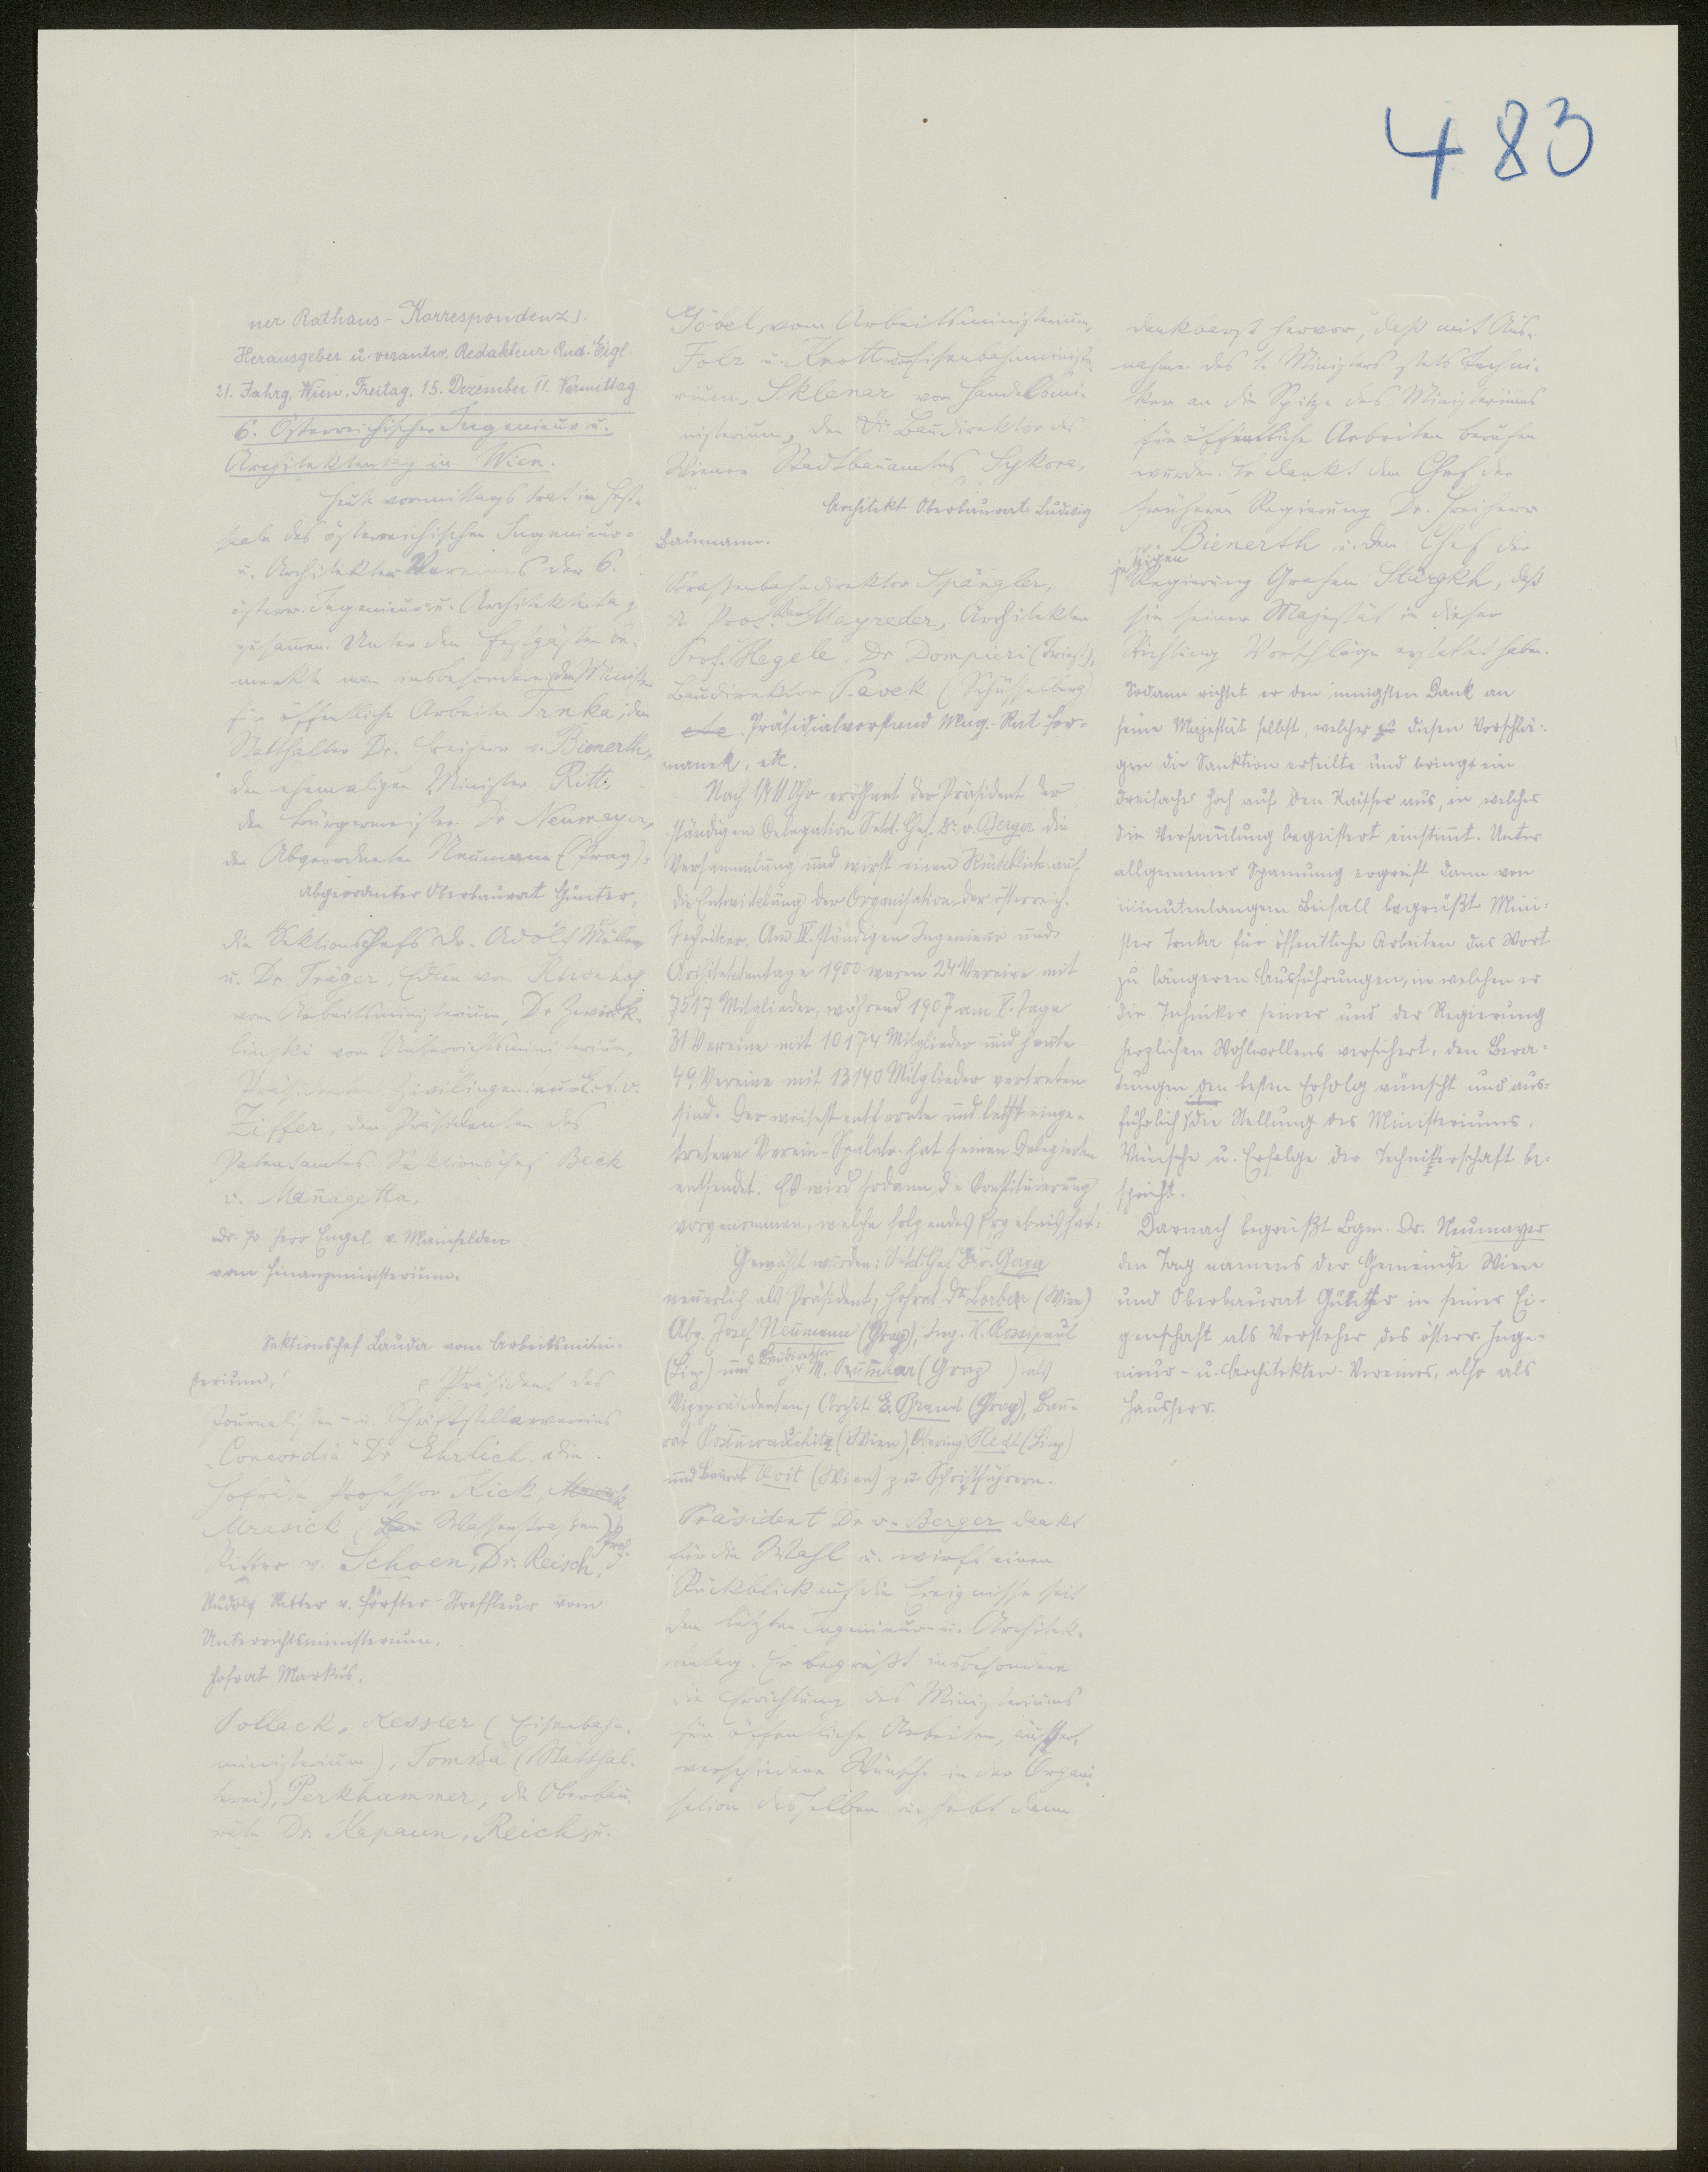 483
ner Rathaus-Korrespondenz).
Herausgeber u. verantw. Redakteur Rud. Eigl
21. Jahrg. Wien, Freitag, 15. Dezember 11. Vormittag
6. Österreichischer Ingenieur u.
Architektentag in Wien.
Heute vormittags trat im Fest-
saale des österreichischen Ingenieur-
u. Architekten Vereines der 6.
österr. Ingenieur u. Architektentag
zusammen. Unter den Festgästen be-
merkte man insbesondere: den Minister
für öffentliche Arbeiten Trnka, den
Statthalter Dr. Freiherr v. Bienerth,
den ehemaligen Minister Ritt,
den Bürgermeister Dr Neumayer,
den Abgeordneten Neumann (Prag),
Abgeordneter Oberbaurat Günter,
die Sektionschefs Dr. Adolf Müller
u. Dr Träger, Edlen von
vom Arbeitsministerium, Dr
vom Unterrichtsministerium,
Präsidenten
Ziffer, den Präsidenten des
Patentamtes Sektionschef Beck
v. Managetta,
Dr. Freiherr Engel v. Mainfelden
vom Finanzministerium.
Sektionschef Lauda vom Arbeitsmini-
sterium,
Präsident des
Journalisten- u. Schriftstellervereins
"Concordia" Dr Ehrlich, die
Hofräte Professor Kick,
Mrasick (Wasserstraßen) Prof.
Ritter v. Schoen, Dr. Reisch,
Rudolf Ritter v. Förster-Streffleur vom
Unterrichtsministerium.
Hofrat Markus,
Pollack, Kessler (Eisenbahn-
ministerium), Tomssa (Statthal-
terei), Perkhammer, die Oberbau-
räte Dr Kapaun, Reich u.
Göbel vom Arbeitsministerium,
Folz u. Knott vom Eisenbahnministe-
rium, Sklenar vom Handelsmi-
nisterium, den Baudirektor des
Wiener Stadtbauamtes Sykora,
Architekt Oberbaurat Ludwig
Baumann.
Straßenbahndirektor Spängler,
Prof. Karl Mayreder, Architekten
Prof. Hegele, Dr Dompieri (Triest),
Baudirektor Pavek
etc. Präsidialvorstand Mag. Rat For-
manek, etc.
Nach 1/4 11 Uhr eröffnet der Präsident der
ständigen Delegation Sekt. Chef Dr. v. Berger die
Versammlung und wirft einen Rückblick auf
die Entwicklung der Organisation der österreich.
Techniker. Am IV. ständigen Ingenieur und
Architektentage 1900 waren 24 Vereine mit
7517 Mitglieder, während 1907 am V. Tage
31 Vereine mit 10174 Mitglieder und heute
49 Vereine mit 13140 Mitglieder vertreten
sind. Der weitest entfernte und letzt einge-
tretene Verein-Spalato hat seinen Delegierten
entsendet. Es wird sodann die Konstituierung
vorgenommen, welche folgendes Ergebnis hat:
Gewählt wurden: Sekt. Chef Dr.
neuerlich als Präsident, Hofrat Dr Lorber (Wien)
Abg. Josef Neumann (Prag), Ing. K. Rossipaul
(Linz) und Baudirektor M. (Graz) als
Vizepräsidenten, Archit. E. Brand (Prag), Bau-
rat (Wien), Hedl (Linz)
und Baurat Voit (Wien) zu Schriftführern.
Präsident Dr v. Berger dankt
für die Wahl u. wirft einen
Rückblick auf die Ereignisse seit
dem letzten Ingenieur- u. Architek-
tentag. Er begrüßt insbesondere
die Errichtung des Ministeriums
für öffentliche Arbeiten, äußert
verschiedene Wünsche in der Organi-
sation desselben u. hebt dann
dankbarst hervor, daß mit Aus-
nahme des 1. Ministers stets Techni-
ker an die Spitze des Ministeriums
für öffentliche Arbeiten berufen
wurden. Er dankt dem Chef der
früheren Regierung Dr. Freiherr
v. Bienerth u. dem Chef der
jetzigen
Regierung Grafen Stürgkh, daß
sie seiner Majestät in dieser
Richtung Vorschläge erstattet haben.
Sodann richtet er den innigsten Dank an
seine Majestät selbst, welcher zu diesen Vorschlä-
gen die Sanktion erteilte und bringt ein
dreifaches Hoch auf den Kaiser aus, in welches
die Versammlung begeistert einstimmt. Unter
allgemeiner Spannung ergreift dann von
minutenlangem Beifall begrüßt Mini-
ster Trnka für öffentliche Arbeiten das Wort
zu längeren Ausführungen, in welchen er
die Techniker seines und der Regierung
herzlichen Wohlwollens versichert, den Bera-
tungen den besten Erfolg wünscht und aus-
führlich über die Stellung des Ministeriums,
Wünsche u. Erfolge der Technikerschaft be-
spricht.
Darnach begrüßt Bgm. Dr. Neumayer
den Tag namens der Gemeinde Wien
und Oberbaurat Günther in seiner Ei-
genschaft als Vorsteher des österr. Inge-
nieur- u. Architekten-Vereines, also als
Hausherr.